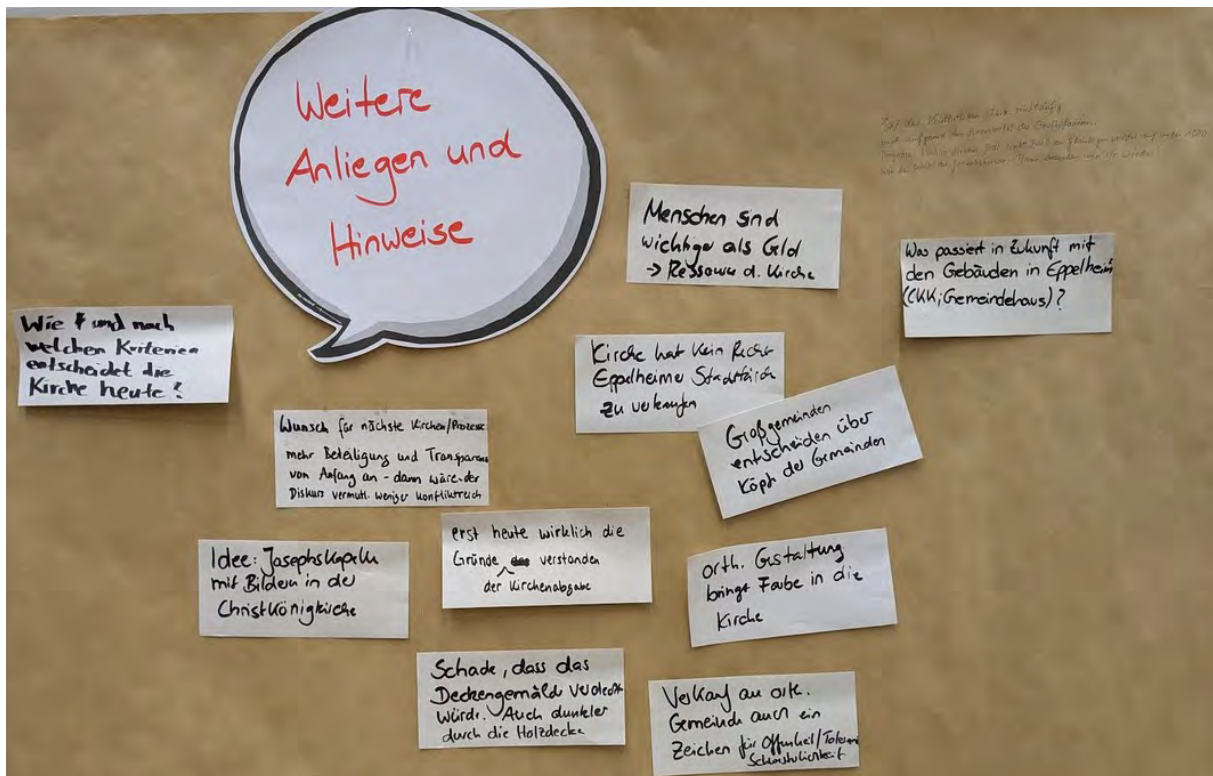 Weitere
Anliegen und
Hinweise
Menschen sind
wichtiger als Geld
-> Ressource d. Kirche
Was passiert in Zukunft mit
den Gebäuden in Eppelheim
(CKK; Gemeindehaus)?
Wie und nach
welchen Kriterien
entscheidet die
Kirche heute?
Kirche hat kein Recht
Eppelheimer
zu verkaufen
Großgemeinden
entscheiden über
Köpfe der Gemeinden
Wunsch für nächste Kirchen/Prozesse
mehr Beteiligung und Transparenz
von Anfang an - dann wäre der
Diskurs vermutl. weniger konfliktreich
erst heute wirklich die
Gründe verstanden
der Kirchenabgabe
Idee: Josephskapelle
mit Bildern in der
Christkönigkirche
orth. Gestaltung
bringt Farbe in die
Kirche
Schade, dass das
Deckengemälde verdeckt
würde. Auch dunkler
durch die Holzdecke
Verkauf an orth.
Gemeinde auch ein
Zeichen für Offenheit/Toleranz